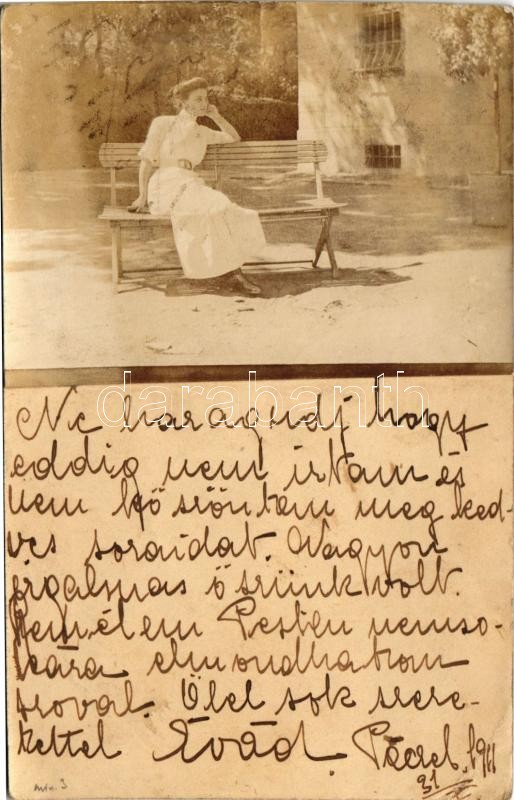 Ne haragudj hogy
eddig nem írtam és
nem köszöntem meg ked-
ves soraidat. Nagyon
őszünk volt.
Remélem Pesten nemso-
kára elmondhatom
szóval. Ölel sok szere-
tettel Évád Péczel, 1911
31
darabanth.com